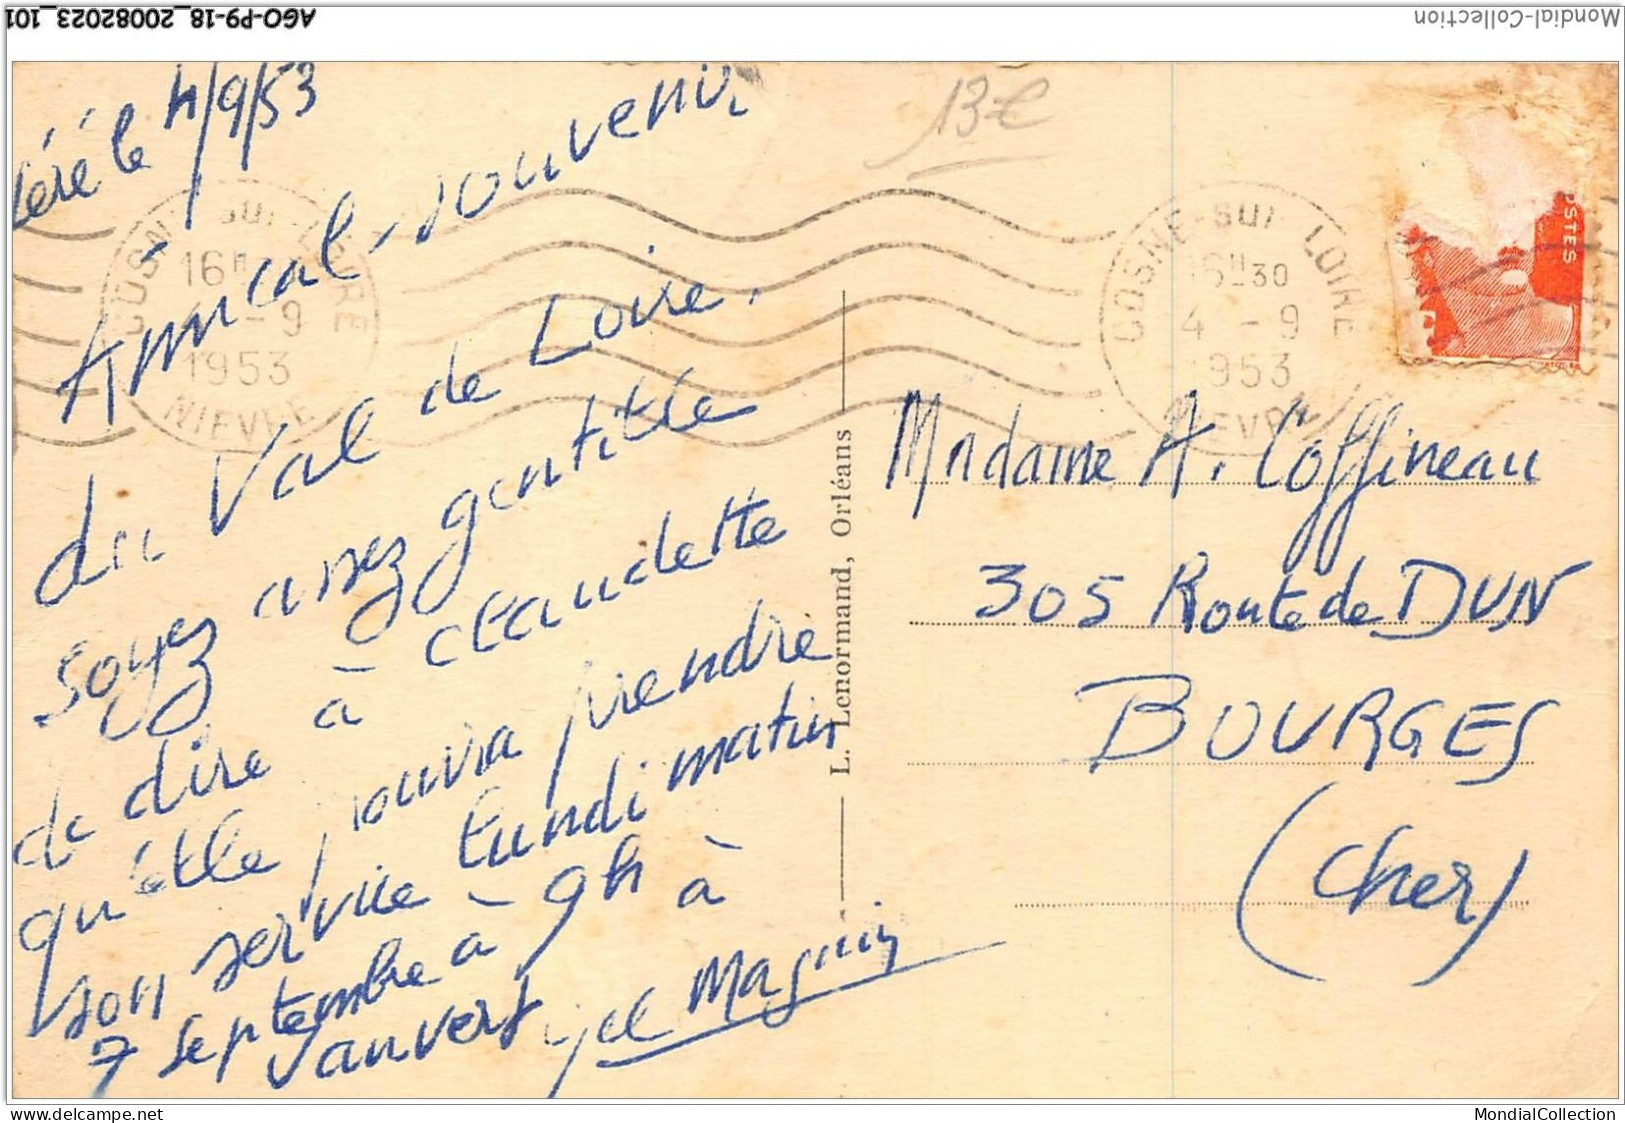 Léré le 4/9/53
Amical souvenir
du Val de Loire.
Soyez assez gentille
de dire à Claudette
qu'elle pourra prendre
son service lundi matin
7 septembre à 9h à
Vauvert
Magnin
L. Lenormand, Orléans
13€
COSNE-SUR-LOIRE
16H
4 - 9
1953
NIEVRE
COSNE-SUR LOIRE
16H30
4 - 9
1953
NIEVRE
POSTES
Madame A. Coffineau
305 Route de DUN
BOURGES
(Cher)
AGO-P9-18_20082023_101
Mondial-Collection
MondialCollection